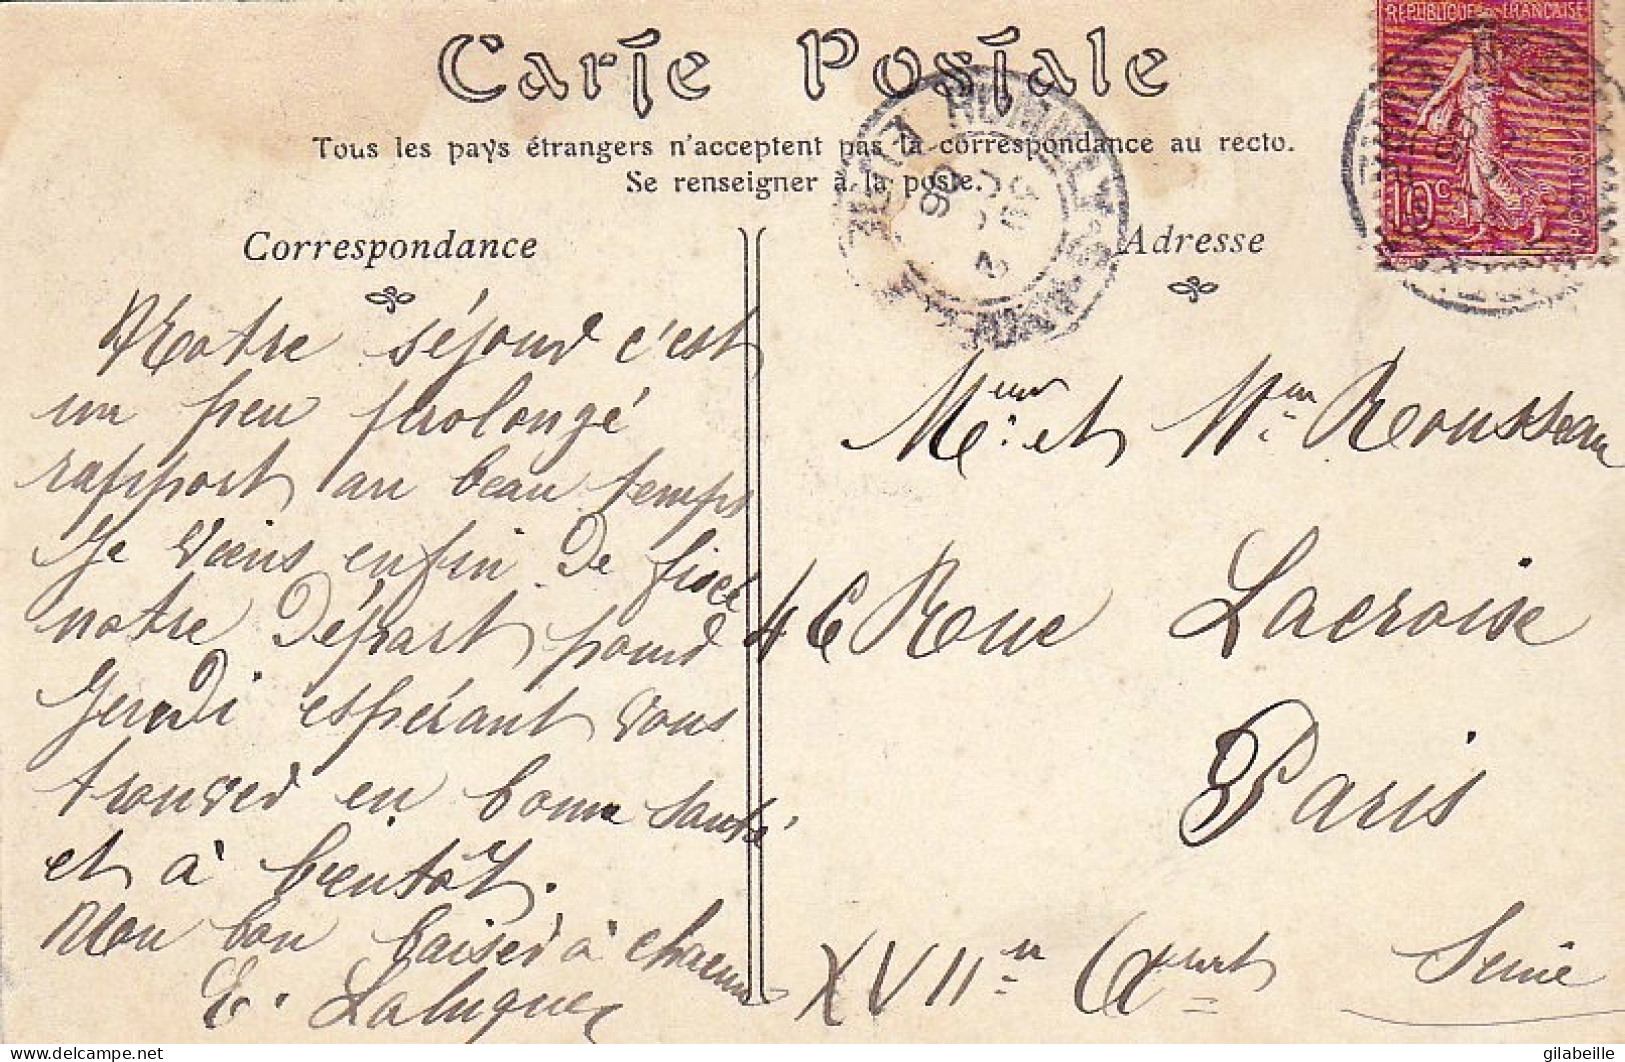 Carte Postale
Tous les pays étrangers n'acceptent pas la correspondance au recto.
Se renseigner à la poste.
Correspondance
Adresse
REPUBLIQUE FRANCAISE
10c
POSTES
Notre séjour c'est
un peu prolongé
rapport au beau temps
Je viens enfin de fixer
notre Départ pour
Jeudi espérant vous
trouver en bonne santé
et à bientôt.
Mon bon baiser à chacun
E.
Meur et Mme Rousseau
46 Rue Lacroix
Paris
XVII
Seine
delcampe.net
gilabeille